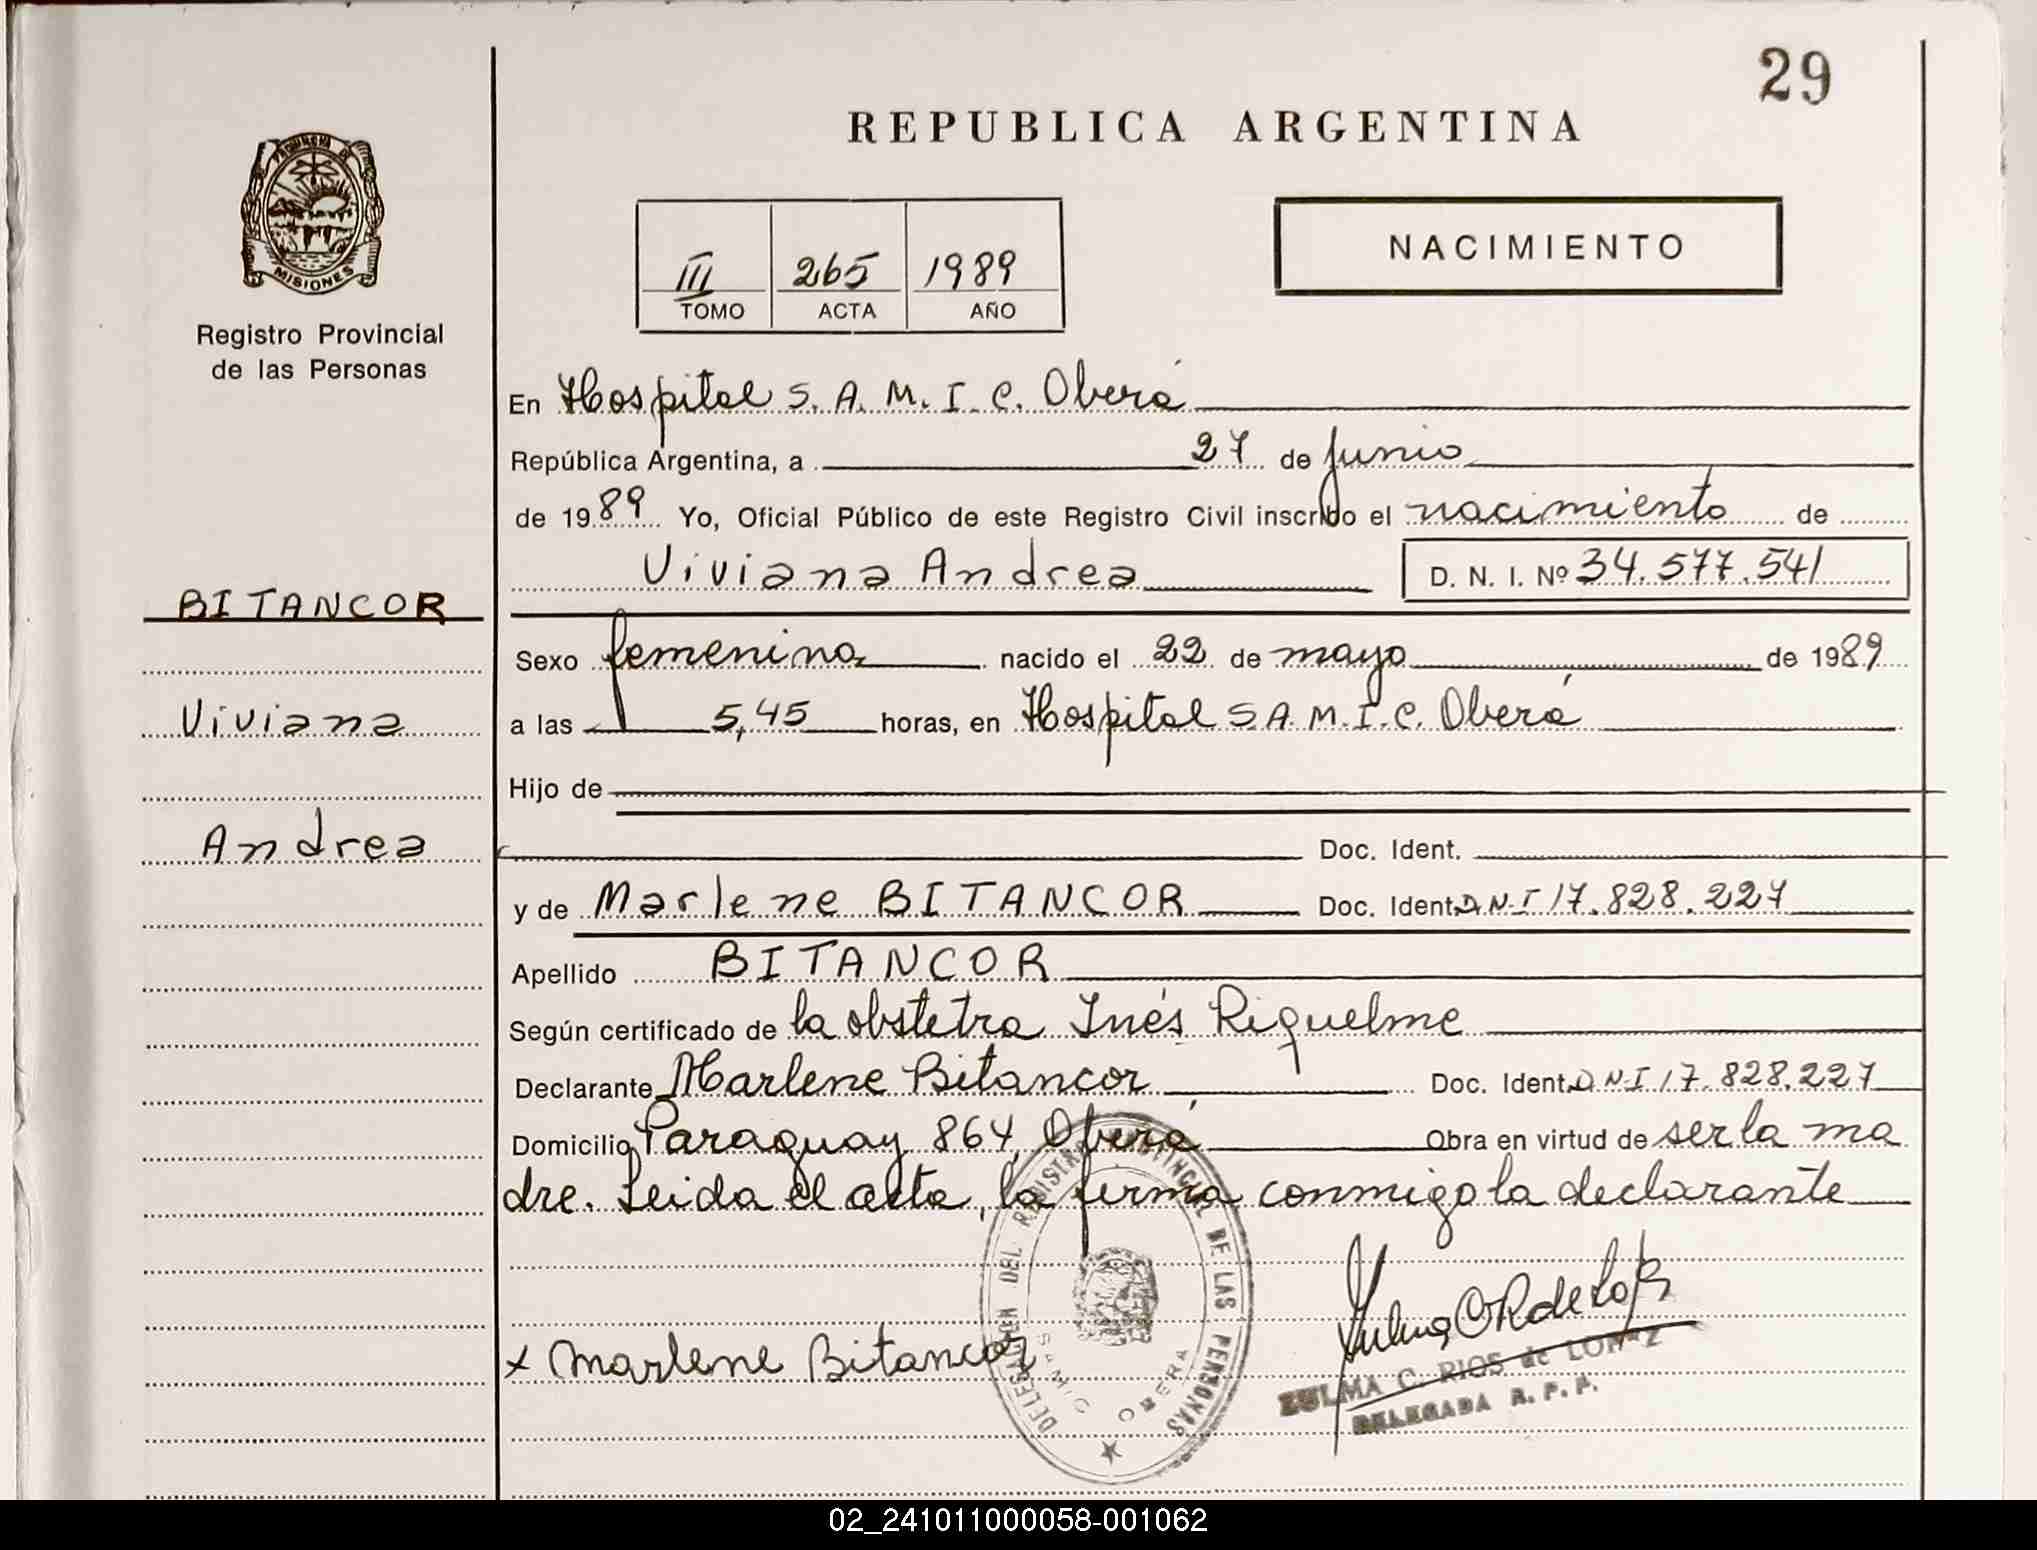 29
REPUBLICA ARGENTINA
PROVINCIA DE
MISIONES
Registro Provincial
de las Personas
III 265 1989
TOMO ACTA AÑO
NACIMIENTO
En Hospital S. A. M. I. C. Oberá
República Argentina, a 27 de junio
de 1989 Yo, Oficial Público de este Registro Civil inscribo el nacimiento de
Viviana Andrea D. N. I. Nº 34.577.541
BITANCOR
Sexo femenino nacido el 22 de mayo de 1989
Viviana
a las 5,45 horas, en Hospital S.A.M.I.C. Oberá
Hijo de
Andrea
Doc. Ident.
y de Marlene BITANCOR Doc. Ident. DNI 17.828.227
Apellido BITANCOR
Según certificado de la obstetra Inés Riquelme
Declarante Marlene Bitancor Doc. Ident. DNI 17.828.227
Domicilio Paraguay 864, Oberá Obra en virtud de ser la ma
dre. Leida el acta, la firma conmigo la declarante
DELEGACION DEL REGISTRO PROVINCIAL DE LAS PERSONAS
OBERA
x Marlene Bitancor
Zulma C R de Lopez
ZULMA C. RIOS de LOPEZ
DELEGADA R. P. P.
02_241011000058-001062